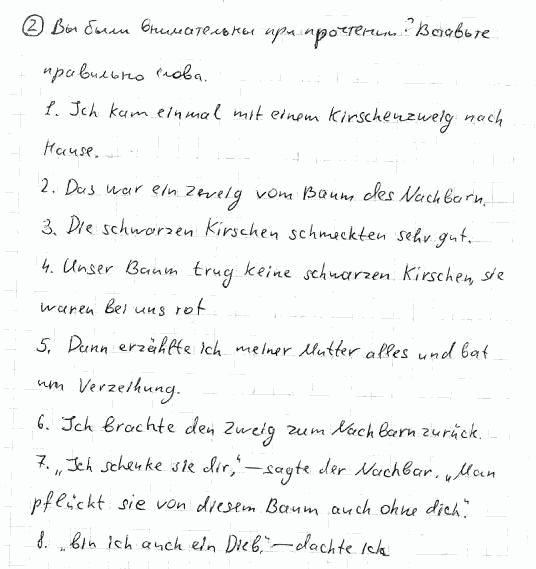 ② Вы были внимательны при прочтении? Вставьте
правильно слова.
1. Ich kam einmal mit einem Kirschenzweig nach
Hause.
2. Das war ein Zweig vom Baum des Nachbarn.
3. Die schwarzen Kirschen schmeckten sehr gut.
4. Unser Baum trug keine schwarzen Kirschen, sie
waren bei uns rot
5. Dann erzählte ich meiner Mutter alles und bat
um Verzeihung.
6. Ich brachte den Zweig zum Nachbarn zurück.
7. „Ich schenke sie dir," – sagte der Nachbar. „Man
pflückt sie von diesem Baum auch ohne dich".
8. „Bin ich auch ein Dieb," – dachte ich